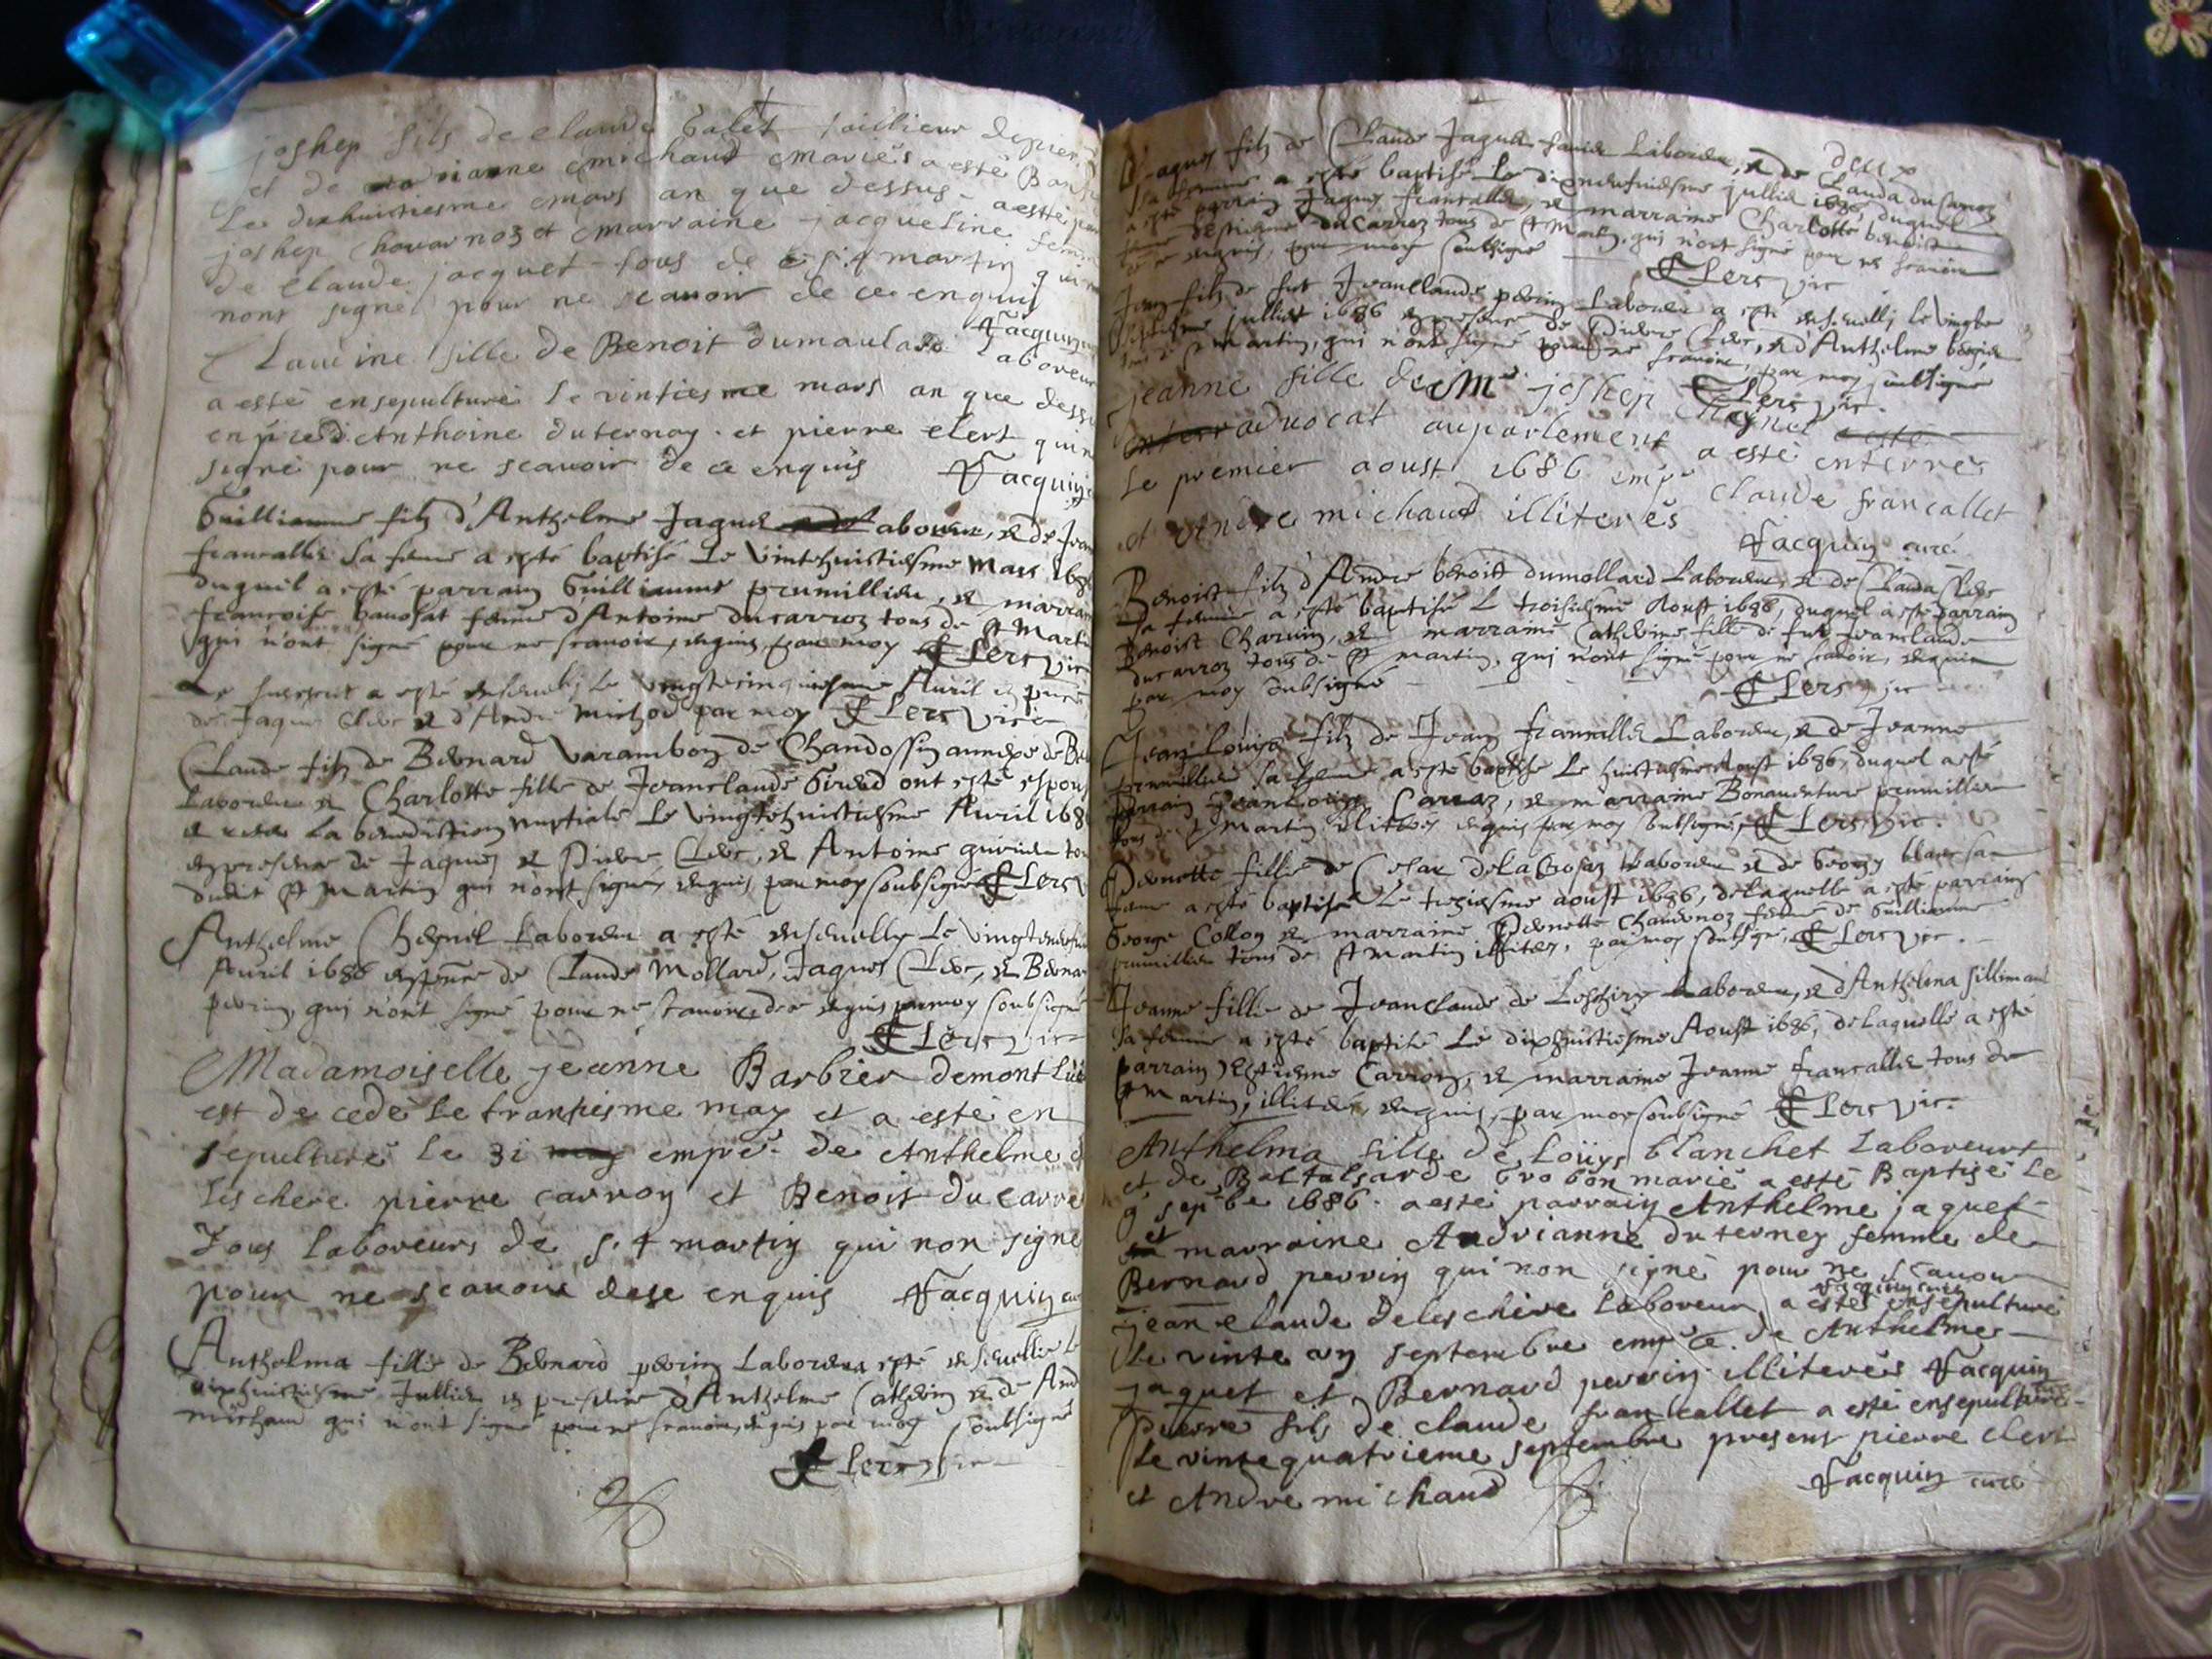 joshep fils de claude Galet taillieur de pier
et de marianne michaud mariés a esté Bap
Le dixhuitiesme mars an que dessus - a esté
joshep chavarnoz et marraine jacqueline femme
de claude jacquet tous de s.t martin qui
nont signé pour ne scavoir de ce enquis
Jacquin
Claudine fille de Benoit dumaulard Laboreur
a esté ensepulturé le vintiesme mars an que dessu
en pre d'Anthoine duternay et pierre clert qui n
signé pour ne scavoir de ce enquis Jacquin
Guilliaume filz d'Anthelme Jaquet Laboureur, et de Jean
francallet sa feme a esté baptisé Le vintehuictiesme Mars 168
duquel a esté parrain Guilliaume prumillieu, et marrai
francoise banosat feme d'Antoine ducarroz tous de St Marti
qui n'ont signé pour ne scavoir, enquis, par moy Clerc vic
Le susnomé a esté ensevely le vingtecinquiesme Avril en pnce
de Jaques Clerc et d'André Michod par moy Clerc vice
Claude filz de Bernard Varambon de Chandossin annexe de Be
Laboreur et Charlotte fille de Jeanclaude Girerd ont esté espou
et receu La benediction nuptiale Le vingtehuictiesme Avril 168
en presence de Jaques et Pierre Clerc, et Antoine guirin tou
dudit St Martin qui n'ont signés enquis par moy soubsigné Clerc v
Anthelme Chegnel Laboreur a esté ensevelly Le vingtneufvie
Avril 1686 en pnce de Claude Mollard, Jaques Clerc, et Berna
perrin, qui n'ont signé pour ne scavoir de ce enquis par moy soubsigné
Clerc vice
Madamoiselle jeanne Barbier demont Lü
est decedé le trantiesme may et a esté en
sepulturé le 31 empré. de Anthelme d
leschere pierre carron et Benoit du carro
Tous Laboreurs de s.t martin qui non signé
pour ne scavoir dese enquis Jacquin cu
Anthelma fille de Bernard perrin Laboreur a esté ensevellie le
dixhuictiesme Julliet en presence d'Anthelme Catherin et de And
michaud qui n'ont signé pour ne scavoir, enquis par moy soubsigné
Clerc vice
deux
Jaques filz de Claude Jaquet Laboreur, et de Clauda ducarroz
sa femme a esté baptisé Le dixneufviesme julliet 1686, duquel
a esté parrain Jaques francallet, et marraine Charlotte benoit
feme d'estienne ducarroz tous de St Martin, qui n'ont signé pour ne scavoir
enquis, par moy soubsigné Clerc vic
Jean filz de fut Jeanclaude perrin Laboreur a esté ensevelly le vingte
septiesme julliet 1686 en presence de Pierre Clerc, et d'Anthelme bergier
tous de St Martin, qui n'ont signé pour ne scavoir, par moy soubsigné
Clerc vic.
jeanne fille de Mr joshep Chegnel
advocat auparlement a esté enterrés
Le premier aoust 1686 empr claude francallet
et Andre michaud illiterés
Jacquin curé
Benoist filz d'André benoist dumollard Laboreur, et de Clauda Clerc
sa femme a esté baptisé Le troisiesme Aoust 1686, duquel a esté parrain
Benoist Charvin, et marraine Catherine fille de fut Jeanclaude
ducarroz tous de St martin, qui n'ont signé pour ne scavoir, enquis
par moy soubsigné Clerc vic
Jean Louis filz de Jean francallet Laboreur, et de Jeanne
prumillieu sa feme a esté baptisé Le huictiesme Aoust 1686, duquel a esté
parrain Jean Louis Carraz, et marraine Bonaventure prumillieu
tous de St Martin illiterés enquis par moy soubsigné, Clerc vic.
Pernette fille de Cesar dela Crosaz Laboreur et de Georgy blanc sa
feme a esté baptisé Le treziesme aoust 1686, de laquelle a esté parrain
George Collon et marraine Pernette Chavernoz feme de Guilliaume
prumillieu tous de St Martin illiterés, par moy soubsigné, Clerc vic.
Jeanne fille de Jeanclaude de Leschere Laboreur, et d'Anthelma Silliman
sa femme a esté baptisé Le dixhuictiesme Aoust 1686, de laquelle a esté
parrain Estienne Carron, et marraine Jeanne francallet tous de
St Martin, illiterés, enquis, par moy soubsigné Clerc vic.
Anthelma fille de Louys blanchet Laboreur
et de Baltalsarde Grobon marié a esté Baptisé Le
9 sepbe 1686. a esté parrain Anthelme jaquet
et marraine Andrianne duterney femme de
Bernard perrin qui non signé pour ne scavoir
Jacquin curé
jean claude deleschère laboreur a esté ensepulturé
Le vinte un septembre empce. de Anthelme
jaquet et Bernard perrin illiterés Jacquin
curé
Pierre fils de claude francallet a esté ensepulturé
Le vintequatrieme septembre present pierre clerc
et Andre michaud Jacquin curé